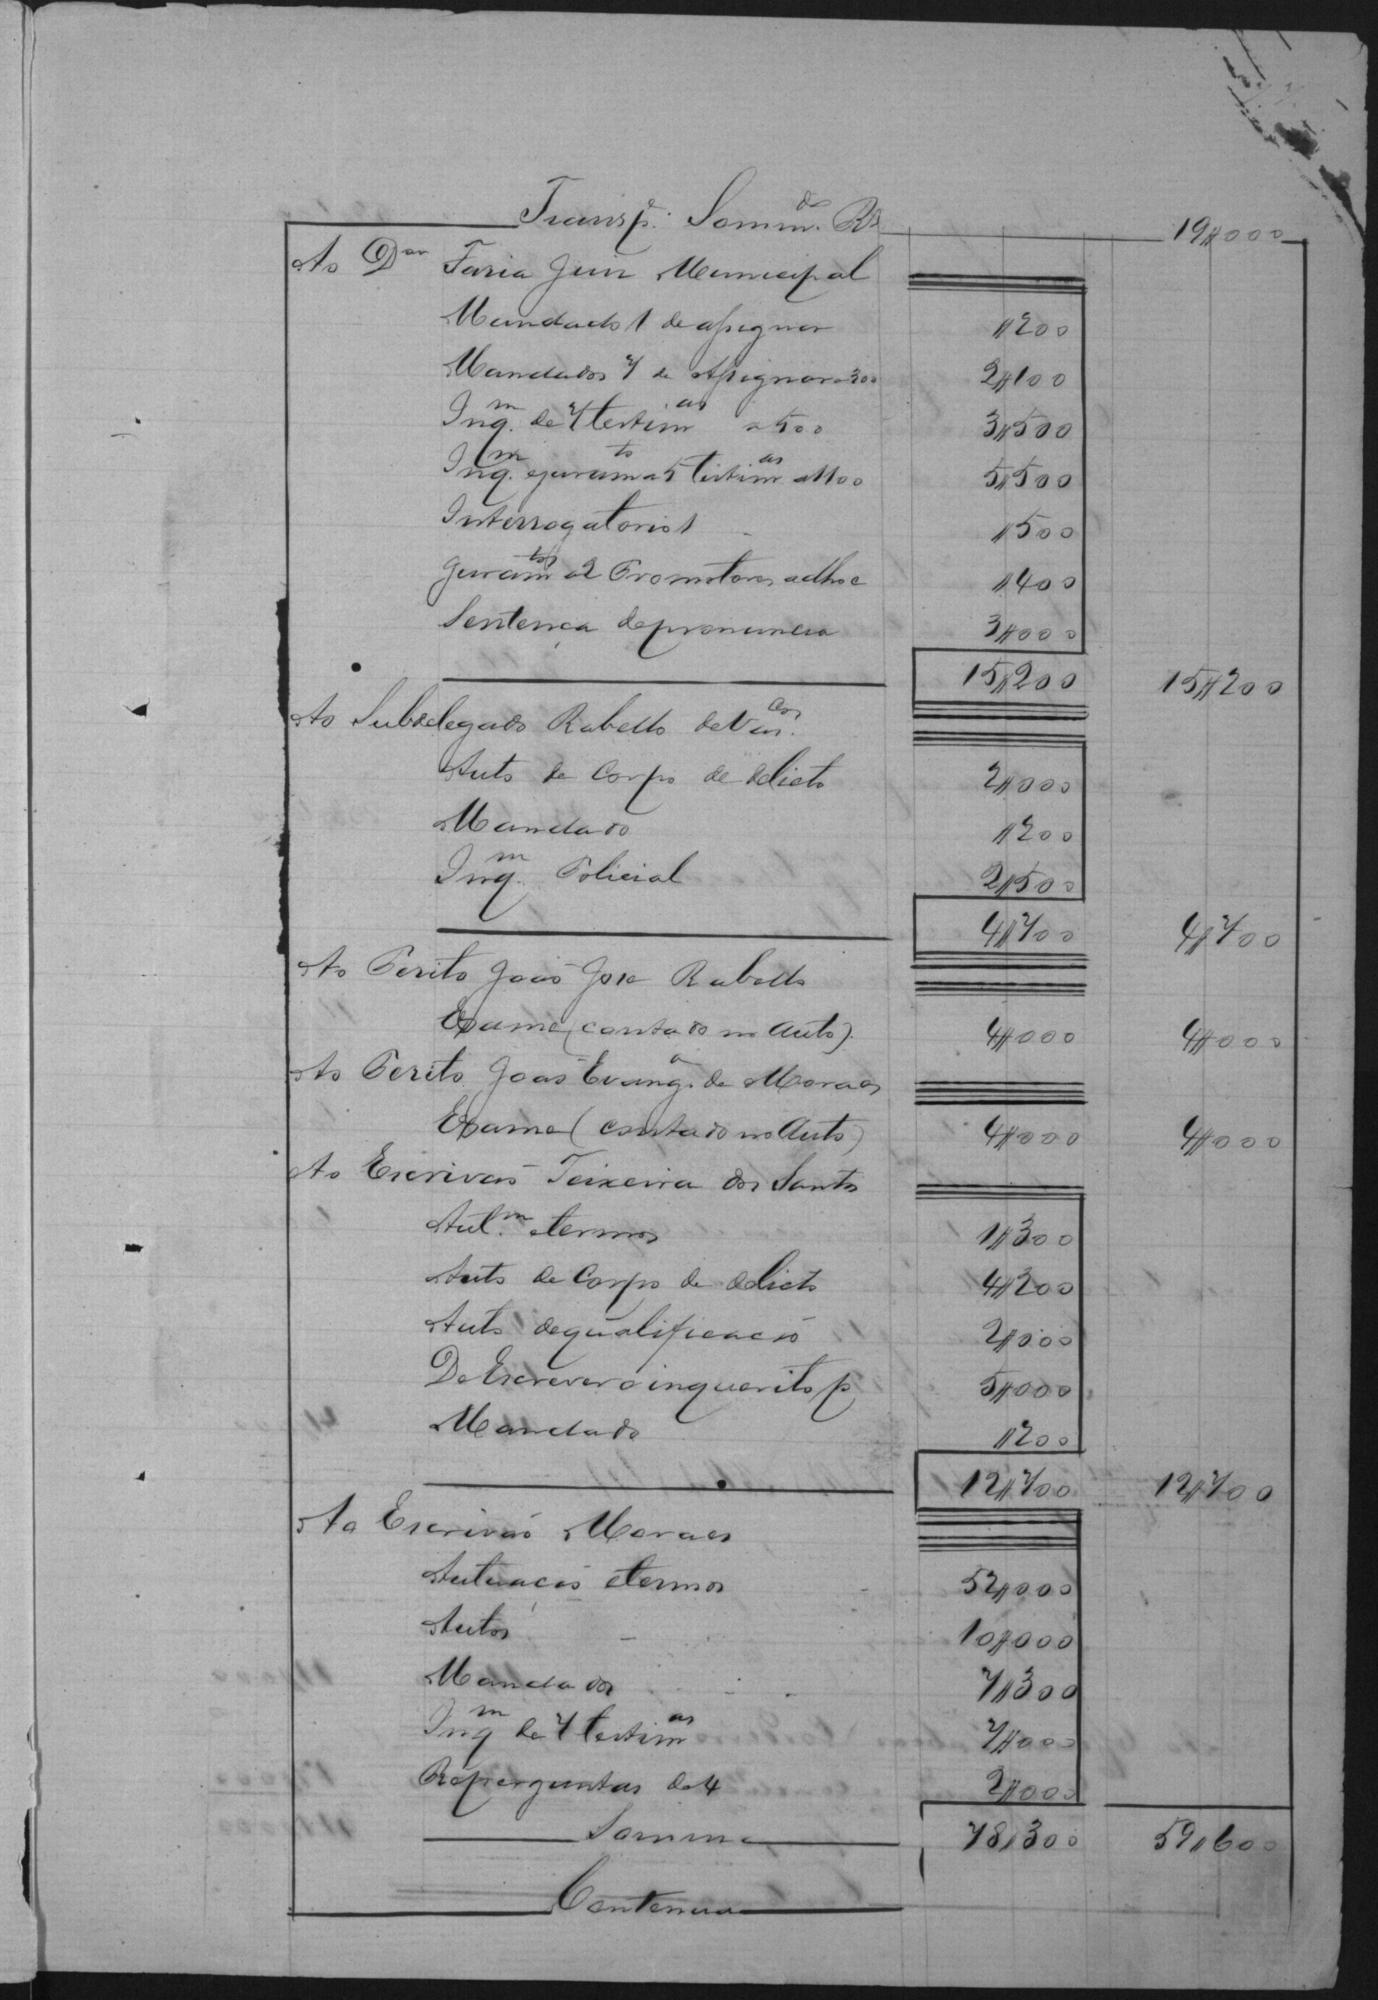 Transp.e Somm.das Rs 19$000
Ao Dor Faria Juiz Municipal
Mandado 1 de assignar $200
Mandados 7 de Assignar a 300 2$100
Inq.m de 7 testim.as a 500 3$500
Inq.m e juram.to a 5 testim.as a 1100 5$500
Interrogatorio 1 $500
Juram.tos a 2 Promotores adhoc $400
Sentença de pronuncia 3$000
15$200 15$200
Ao Subdelegado Rabello de Vas.cos
Auto de Corpo de delicto 2$000
Mandado $200
Inq.m Policial 2$500
4$700 4$700
Ao Perito João José Rabello
Exame (contado no Auto) 4$000 4$000
Ao Perito João Evang.a de Moraes
Exame (contado no Auto) 4$000 4$000
Ao Escrivão Teixeira dos Santos
Aut.m e termos 1$300
Auto de Corpo de delicto 4$200
Auto de qualificação 2$000
De Escrever o inquerito p 5$000
Mandado $200
12$700 12$700
Ao Escrivão Moraes
Autuação e termos 52$000
Autos 10$000
Mandados 7$300
Inq.m de 7 testim.as 7$000
Reperguntas de 4 2$000
Somma 78$300 59$600
Contenua